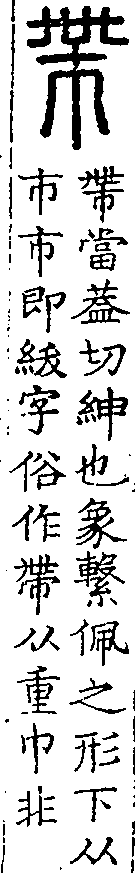 帶
帶當蓋切紳也象繫佩之形下从
巿巿即紱字俗作帶从重巾非